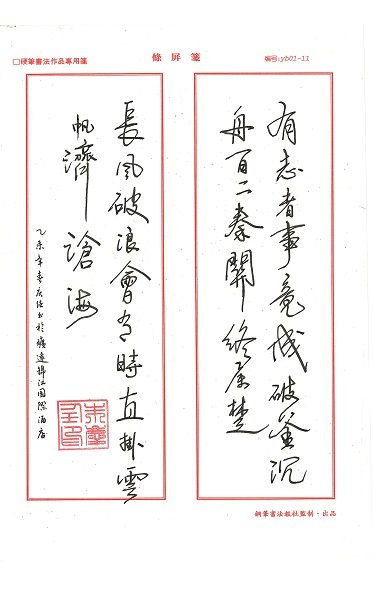 □硬筆書法作品專用箋
條屏箋
编号:yb01-11
有志者事竟成破釜沉
舟百二秦關終屬楚
長風破浪會有時直掛雲
帆濟滄海
乙未年 书於 锦江国际酒店
鋼筆書法報社監制·出品